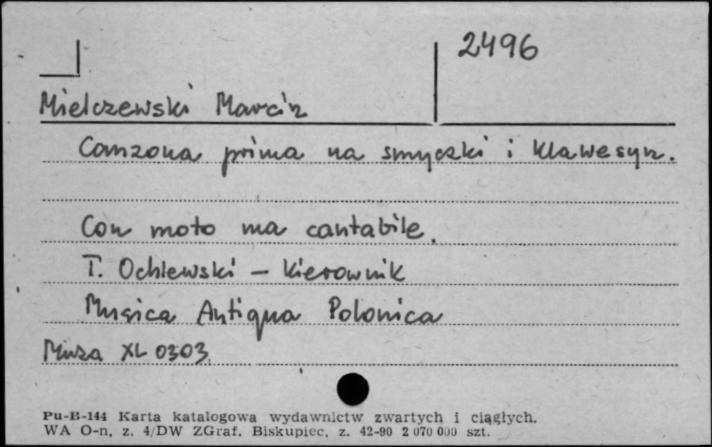 2496
Mielczewski Marcin
Canzona prima na smyczki i klawesyn.
Con moto ma cantabile.
T. Ochlewski – kierownik
Musica Antiqua Polonica
Muza XL 0303
Pu-B-144 Karta katalogowa wydawnictw zwartych i ciągłych.
WA O-n, z. 4/DW ZGraf. Biskupiec, z. 42-90 2 070 000 szt.